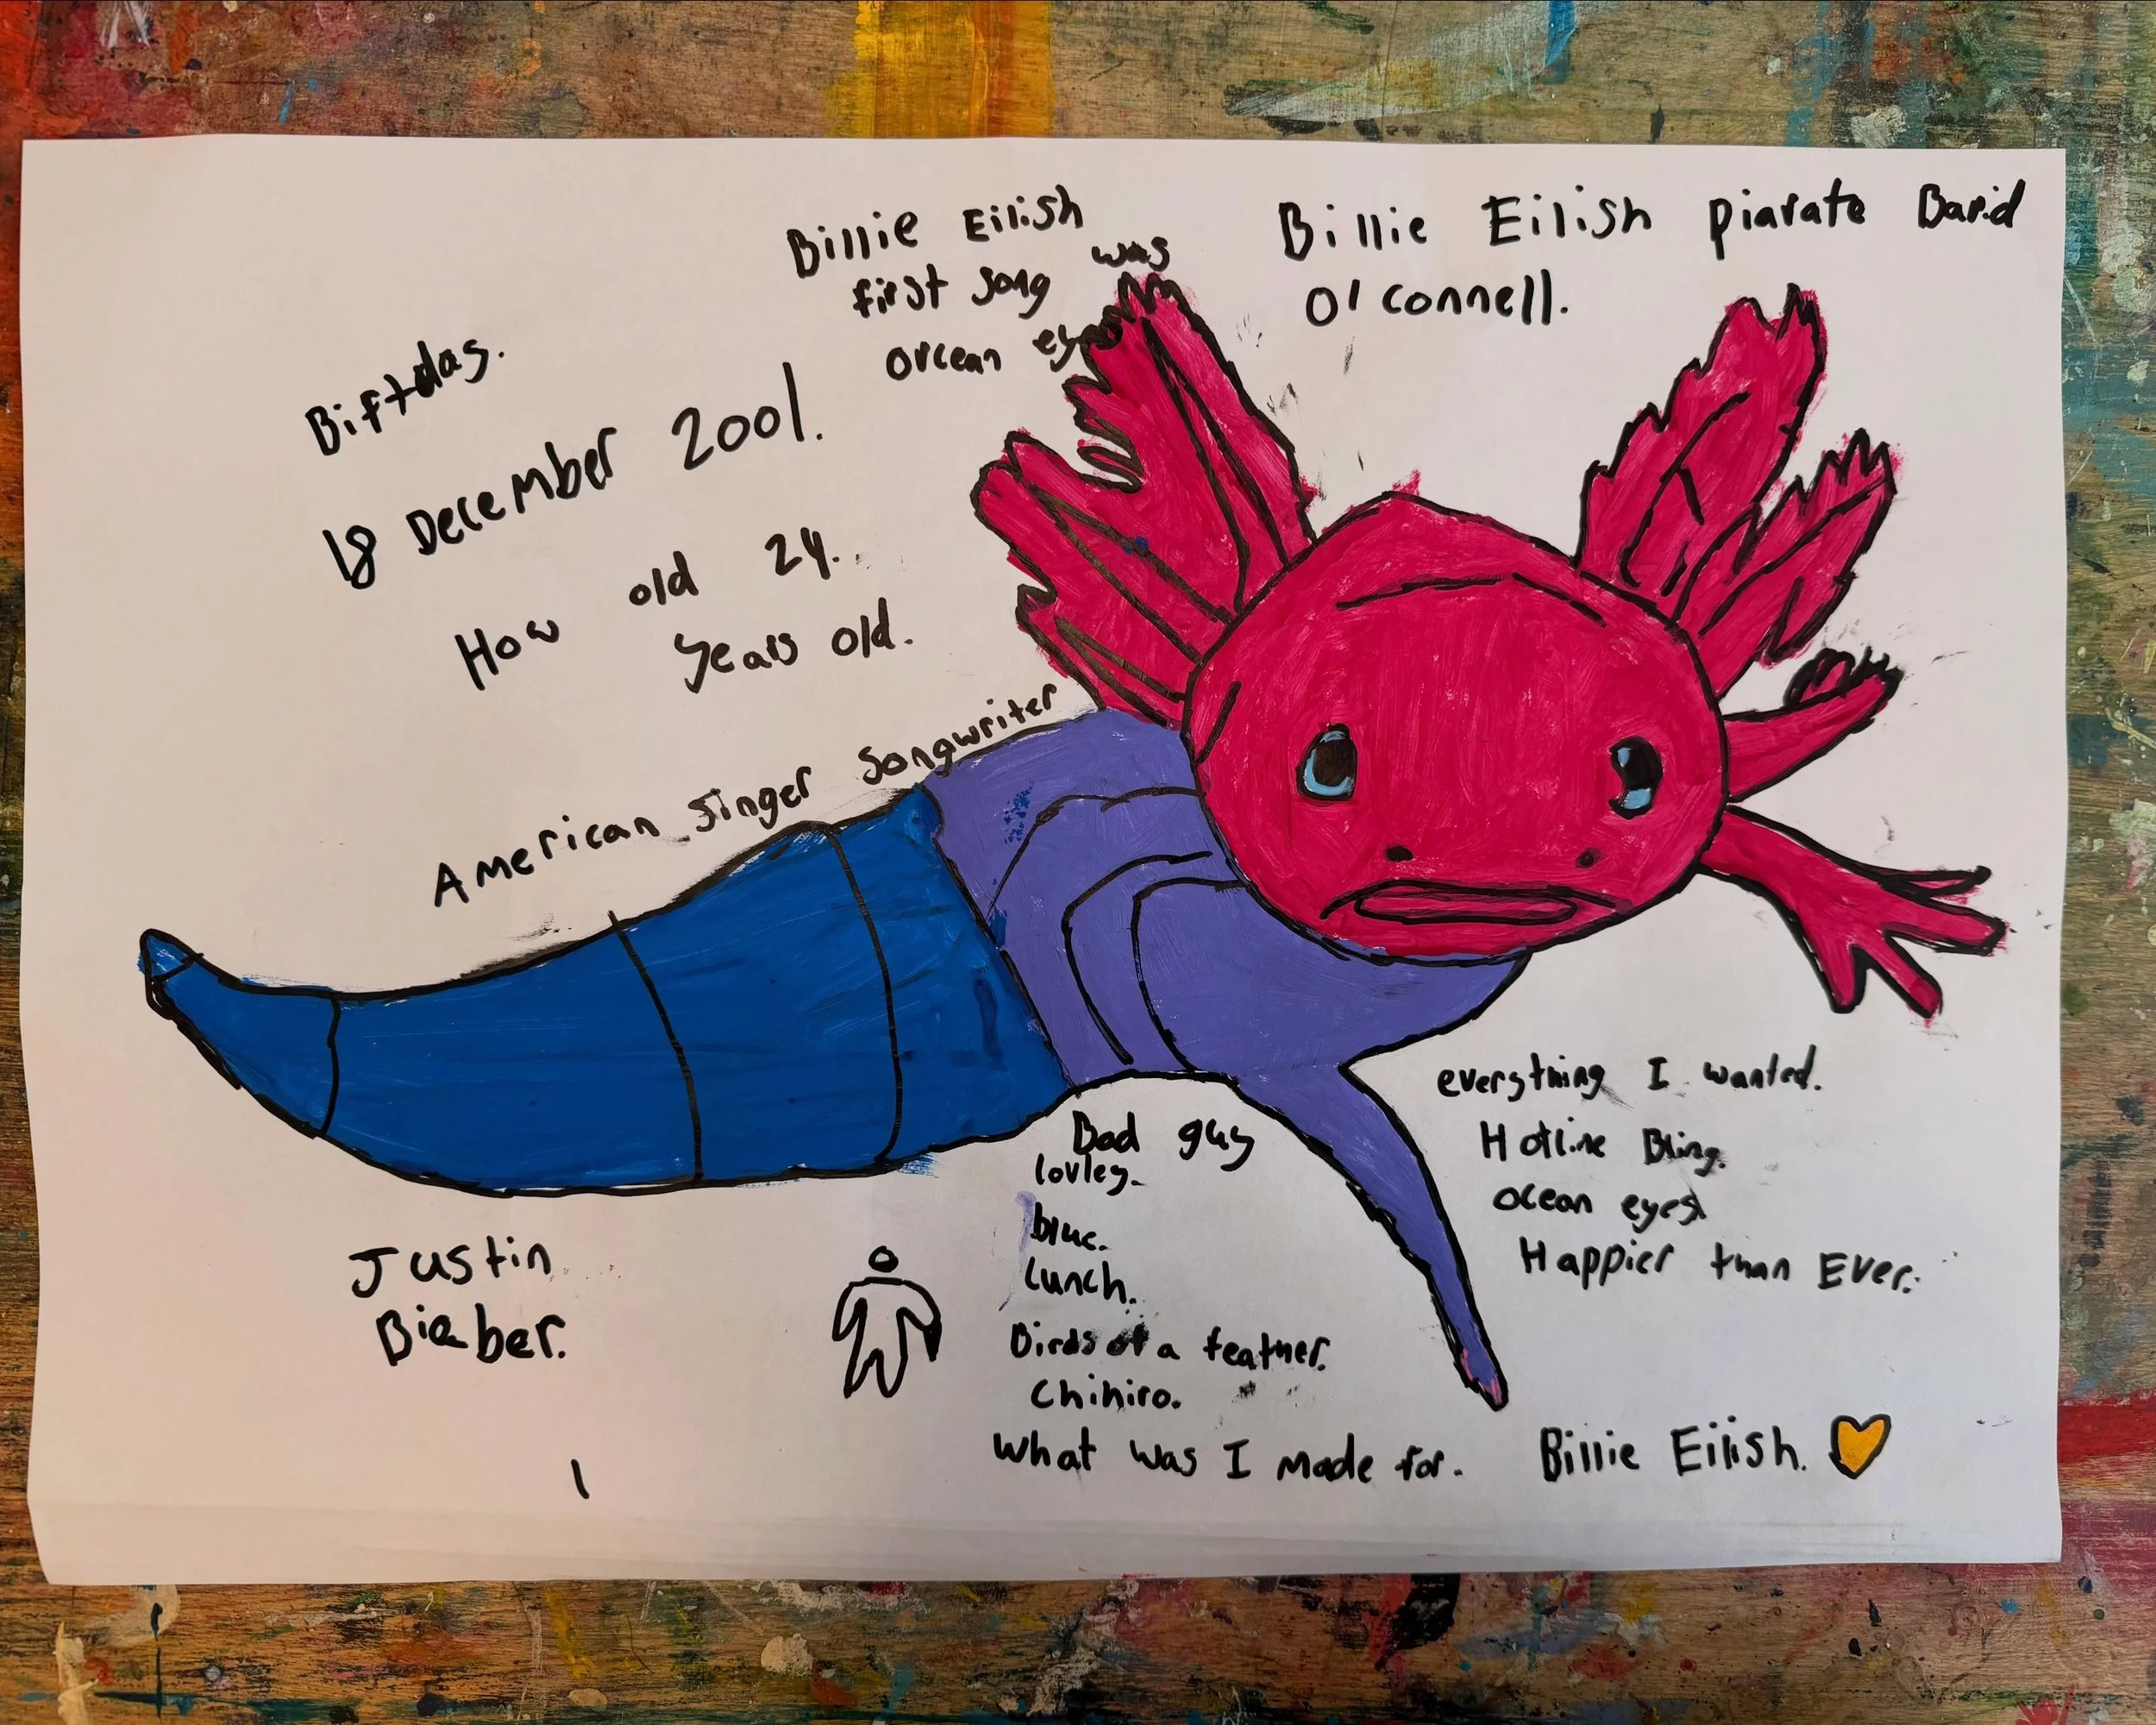 Billie Eilish
first song was
orcean eyes
Billie Eilish piarate Barid
O'connell.
Biftdas.
18 December 2001.
How old 24.
years old.
American Singer Songwriter
everything I wanted.
Hotline Bling.
ocean eyes
Happier than Ever.
Bad guy
lovley.
blue.
Lunch.
Birds of a feather.
Chihiro.
What was I made for.
Justin
Bieber.
Billie Eilish.